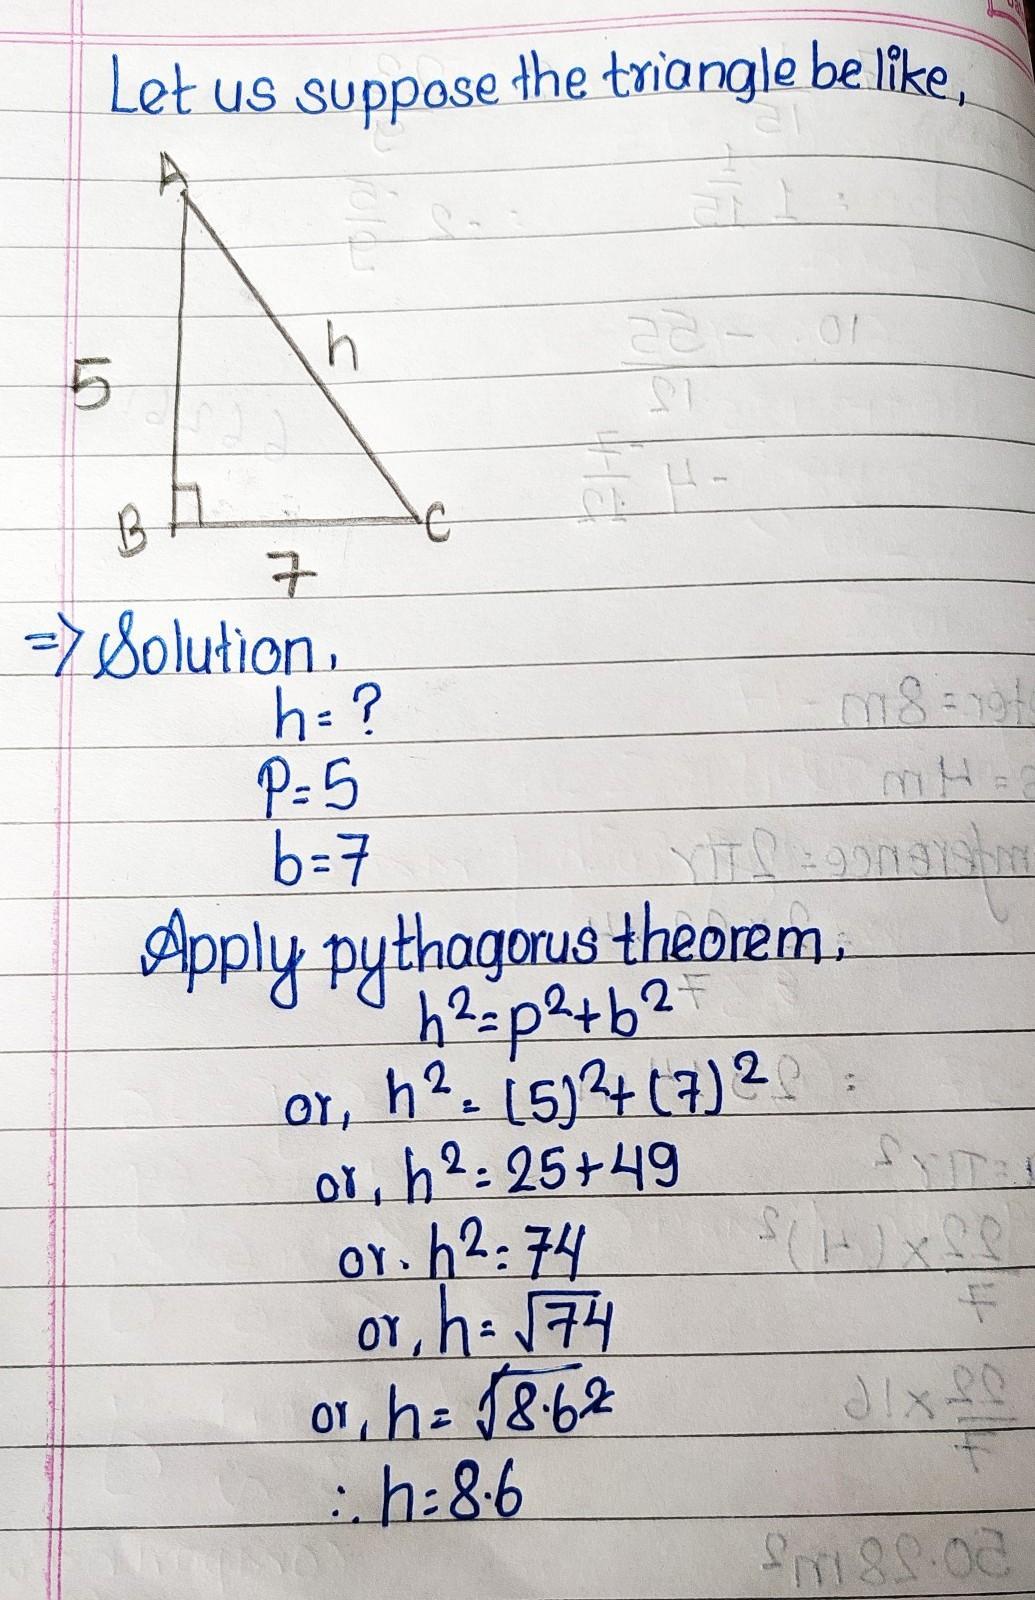 Let us suppose the triangle be like,
A
5
h
B
C
7
=> Solution,
h = ?
P = 5
b = 7
Apply pythagorus theorem,
h² = p² + b²
or, h² = (5)² + (7)²
or, h² = 25 + 49
or. h² = 74
or, h = √74
or, h = √8.6²
∴ h = 8.6